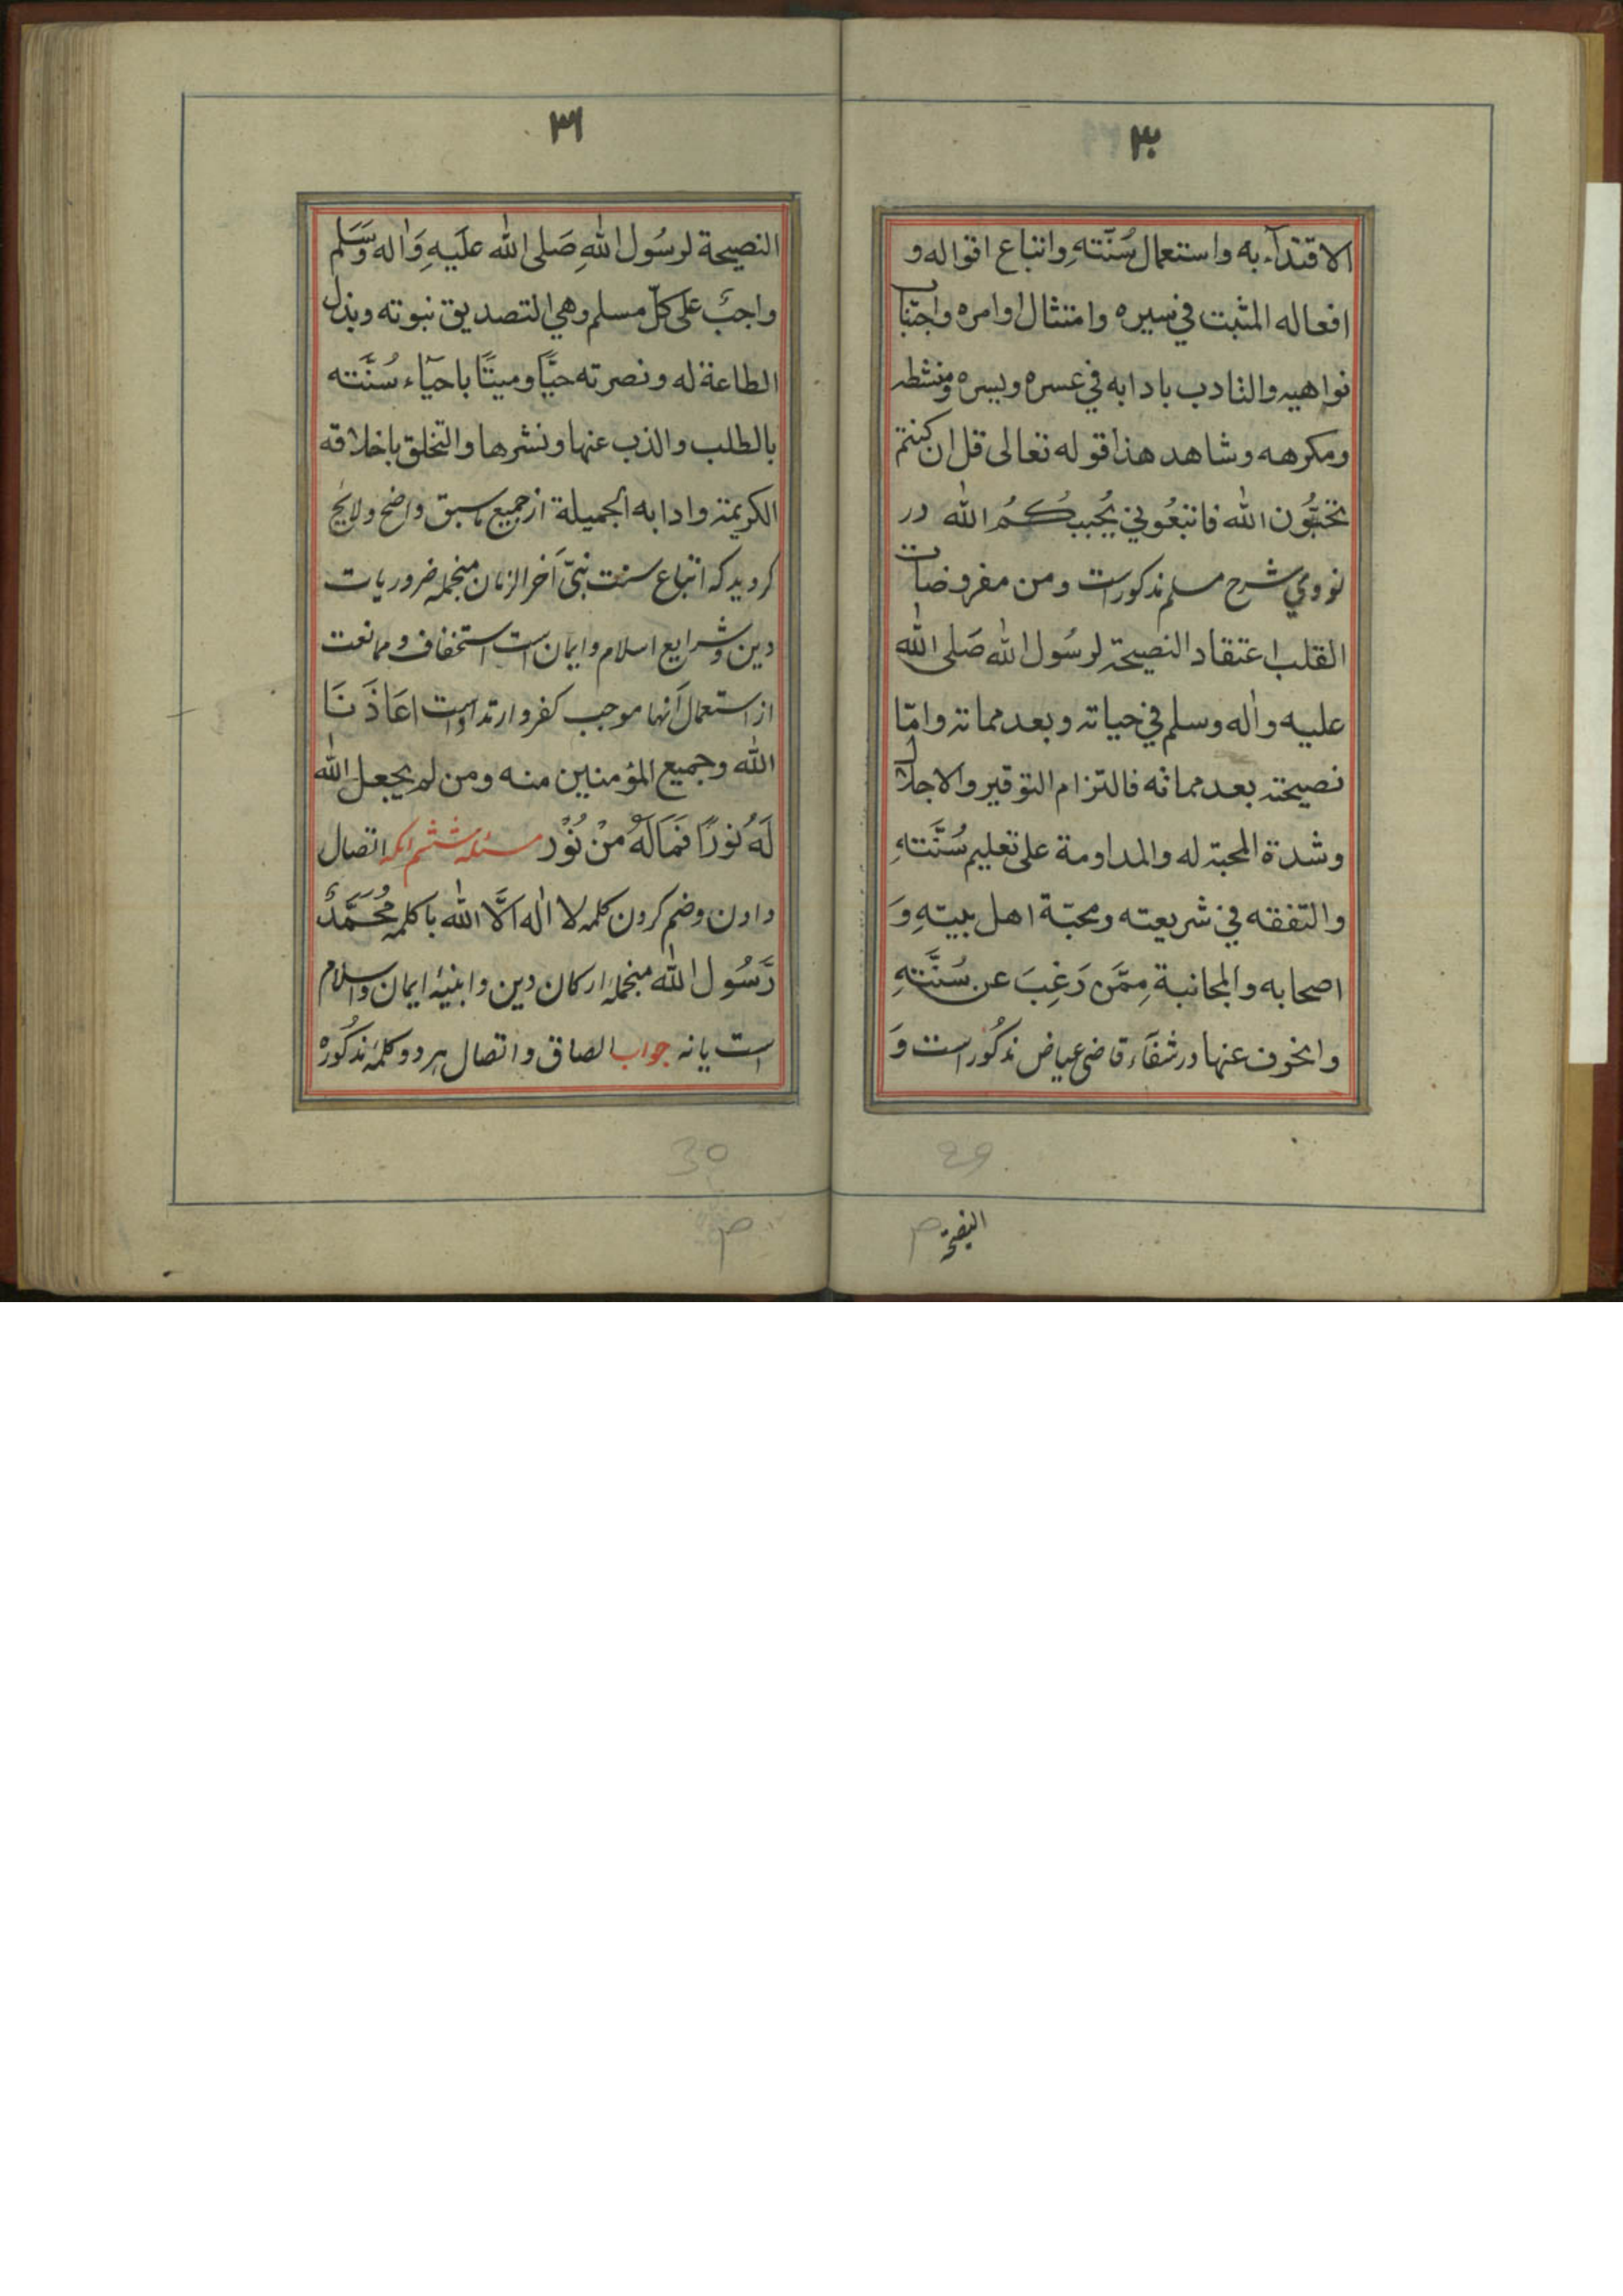 ٣٠
الاقتدآء به واستعمال سُنّتهِ واتباع اقواله و
افعاله المثبت في سيره وامتثال اوامره واجتناب
نواهيه والتادب بادابه في عسره ويسره ومنشطه
ومكرهه وشاهد هذا قوله تعالى قل ان كنتم
تحبُّون الله فاتبعُوني يُحببكُمُ الله در
نووي شرح مسلم مذكور است ومن مفروضات
القلب اعتقاد النصيحة لرسُول الله صَلى الله
عليه واله وسلم في حياته وبعد مماته وامّا
نصيحته بعد مماته فالتزام التوقير والاجلال
وشدة المحبة له والمداومة على تعليم سُنَّتهِ
والتفقه في شريعته ومحبّة اهل بيتهِ وَ
اصحابه والمجانبة مِمَّن رَغِبَ عن سُنَّتهِ
وانحرف عنها در شفآء قاضى عياض مذكُور است وَ
النصيحة
29
٣١
النصيحة لرسُول اللهِ صَلى الله علَيهِ وَاله وَسَلم
واجبٌ على كلّ مسلم وهي التصديق نبوته وبذل
الطاعة له ونصرته حيًّا وميتًا باحيآء سُنَّته
بالطلب والذب عنها ونشرها والتخلق باخلاقه
الكريمة وادابه الجميلة از جميع ماسبق واضح ولايح
كرديد كه اتباع سنت نبىّ آخر الزمان منجمله ضروريات
دين وشرايع اسلام وايمان است استخفاف و ممانعت
از استعمال آنها موجب كفر وارتداد است اعَاذَنَا
الله وجميع المؤمنين منه ومن لم يجعل الله
لَهُ نورًا فَمَالَهُ مِنْ نُوْر مسئله ششم انكه اتصال
دادن وضم كردن كلمه لا اله الَّا الله با كلمه مُحَمَّدٌ
رَّسُول الله منجملهٔ اركان دين وابنيهٔ ايمان واسلام
است يا نه جواب الصاق و اتصال هر دو كلمهٔ مذكُوره
30